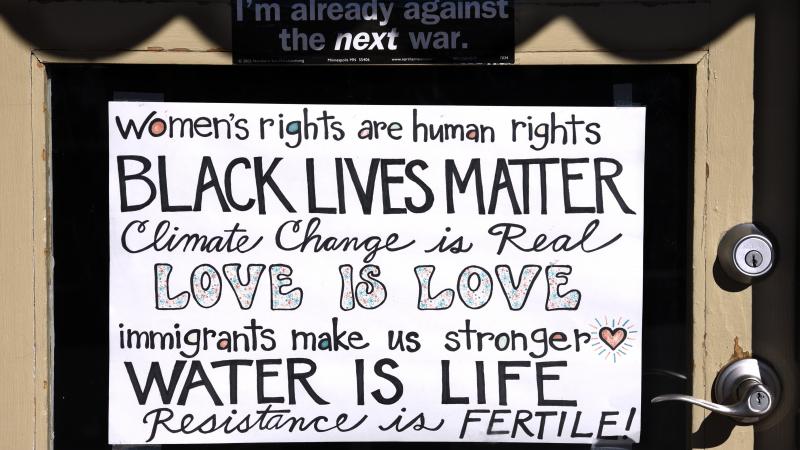 I'm already against
the next war.
Minneapolis MN 55406
Women's rights are human rights
BLACK LIVES MATTER
Climate Change is Real
LOVE IS LOVE
immigrants make us stronger
WATER IS LIFE
Resistance is FERTILE!